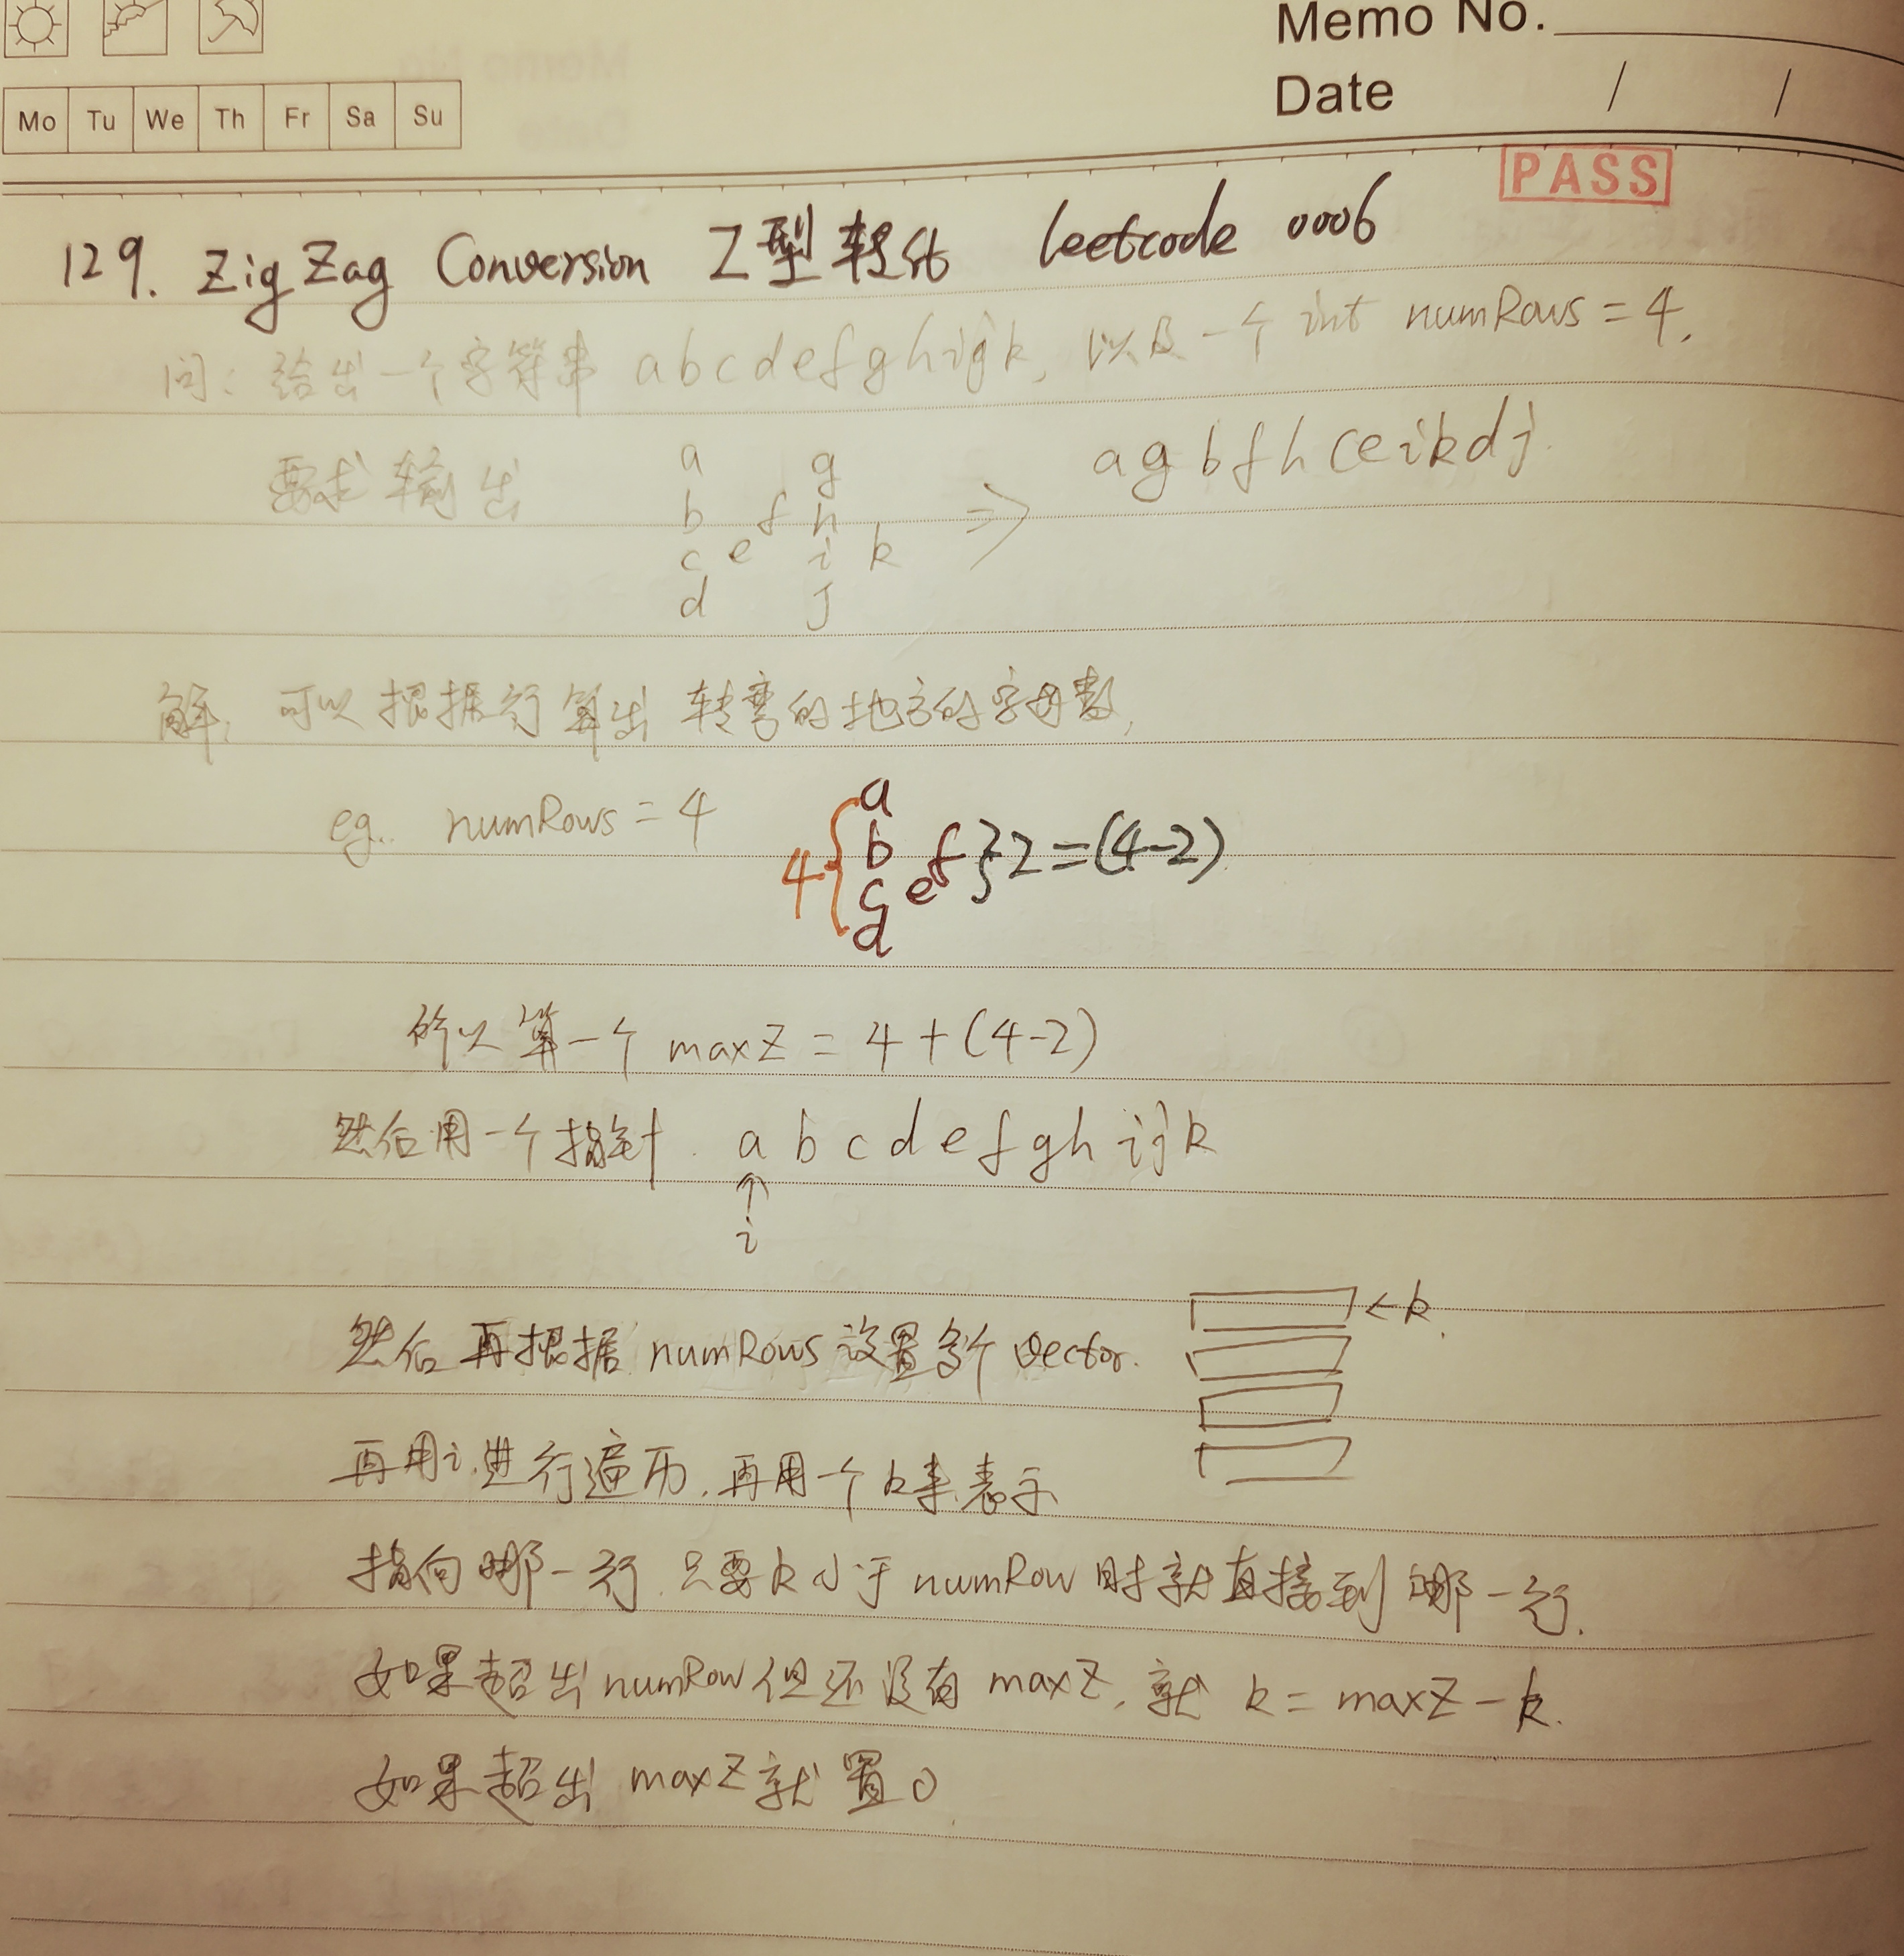 Memo No.
Mo Tu We Th Fr Sa Su
Date / /
PASS
129. ZigZag Conversion Z型转化 leetcode 0006
问: 给出一个字符串 abcdefghijk, 以及一个 int numRows = 4,
要求输出
a g
b f h ⇒ agbfhceikdj.
c e i k
d j
解: 可以根据行算出 转弯的地方的字母数,
eg. numRows = 4
4{ a
b f }2=(4-2)
c e
d
所以算一个 maxZ = 4 + (4-2)
然后用一个指针. a b c d e f g h i j k
↑
i
然后再根据 numRows 设置多个 vector. ← k.
再用i进行遍历, 再用一个k来表示
指向哪一行. 只要k小于 numRow 时就直接到哪一行.
如果超出 numRow 但还没有 maxZ, 就 k = maxZ - k.
如果超出 maxZ 就置0.